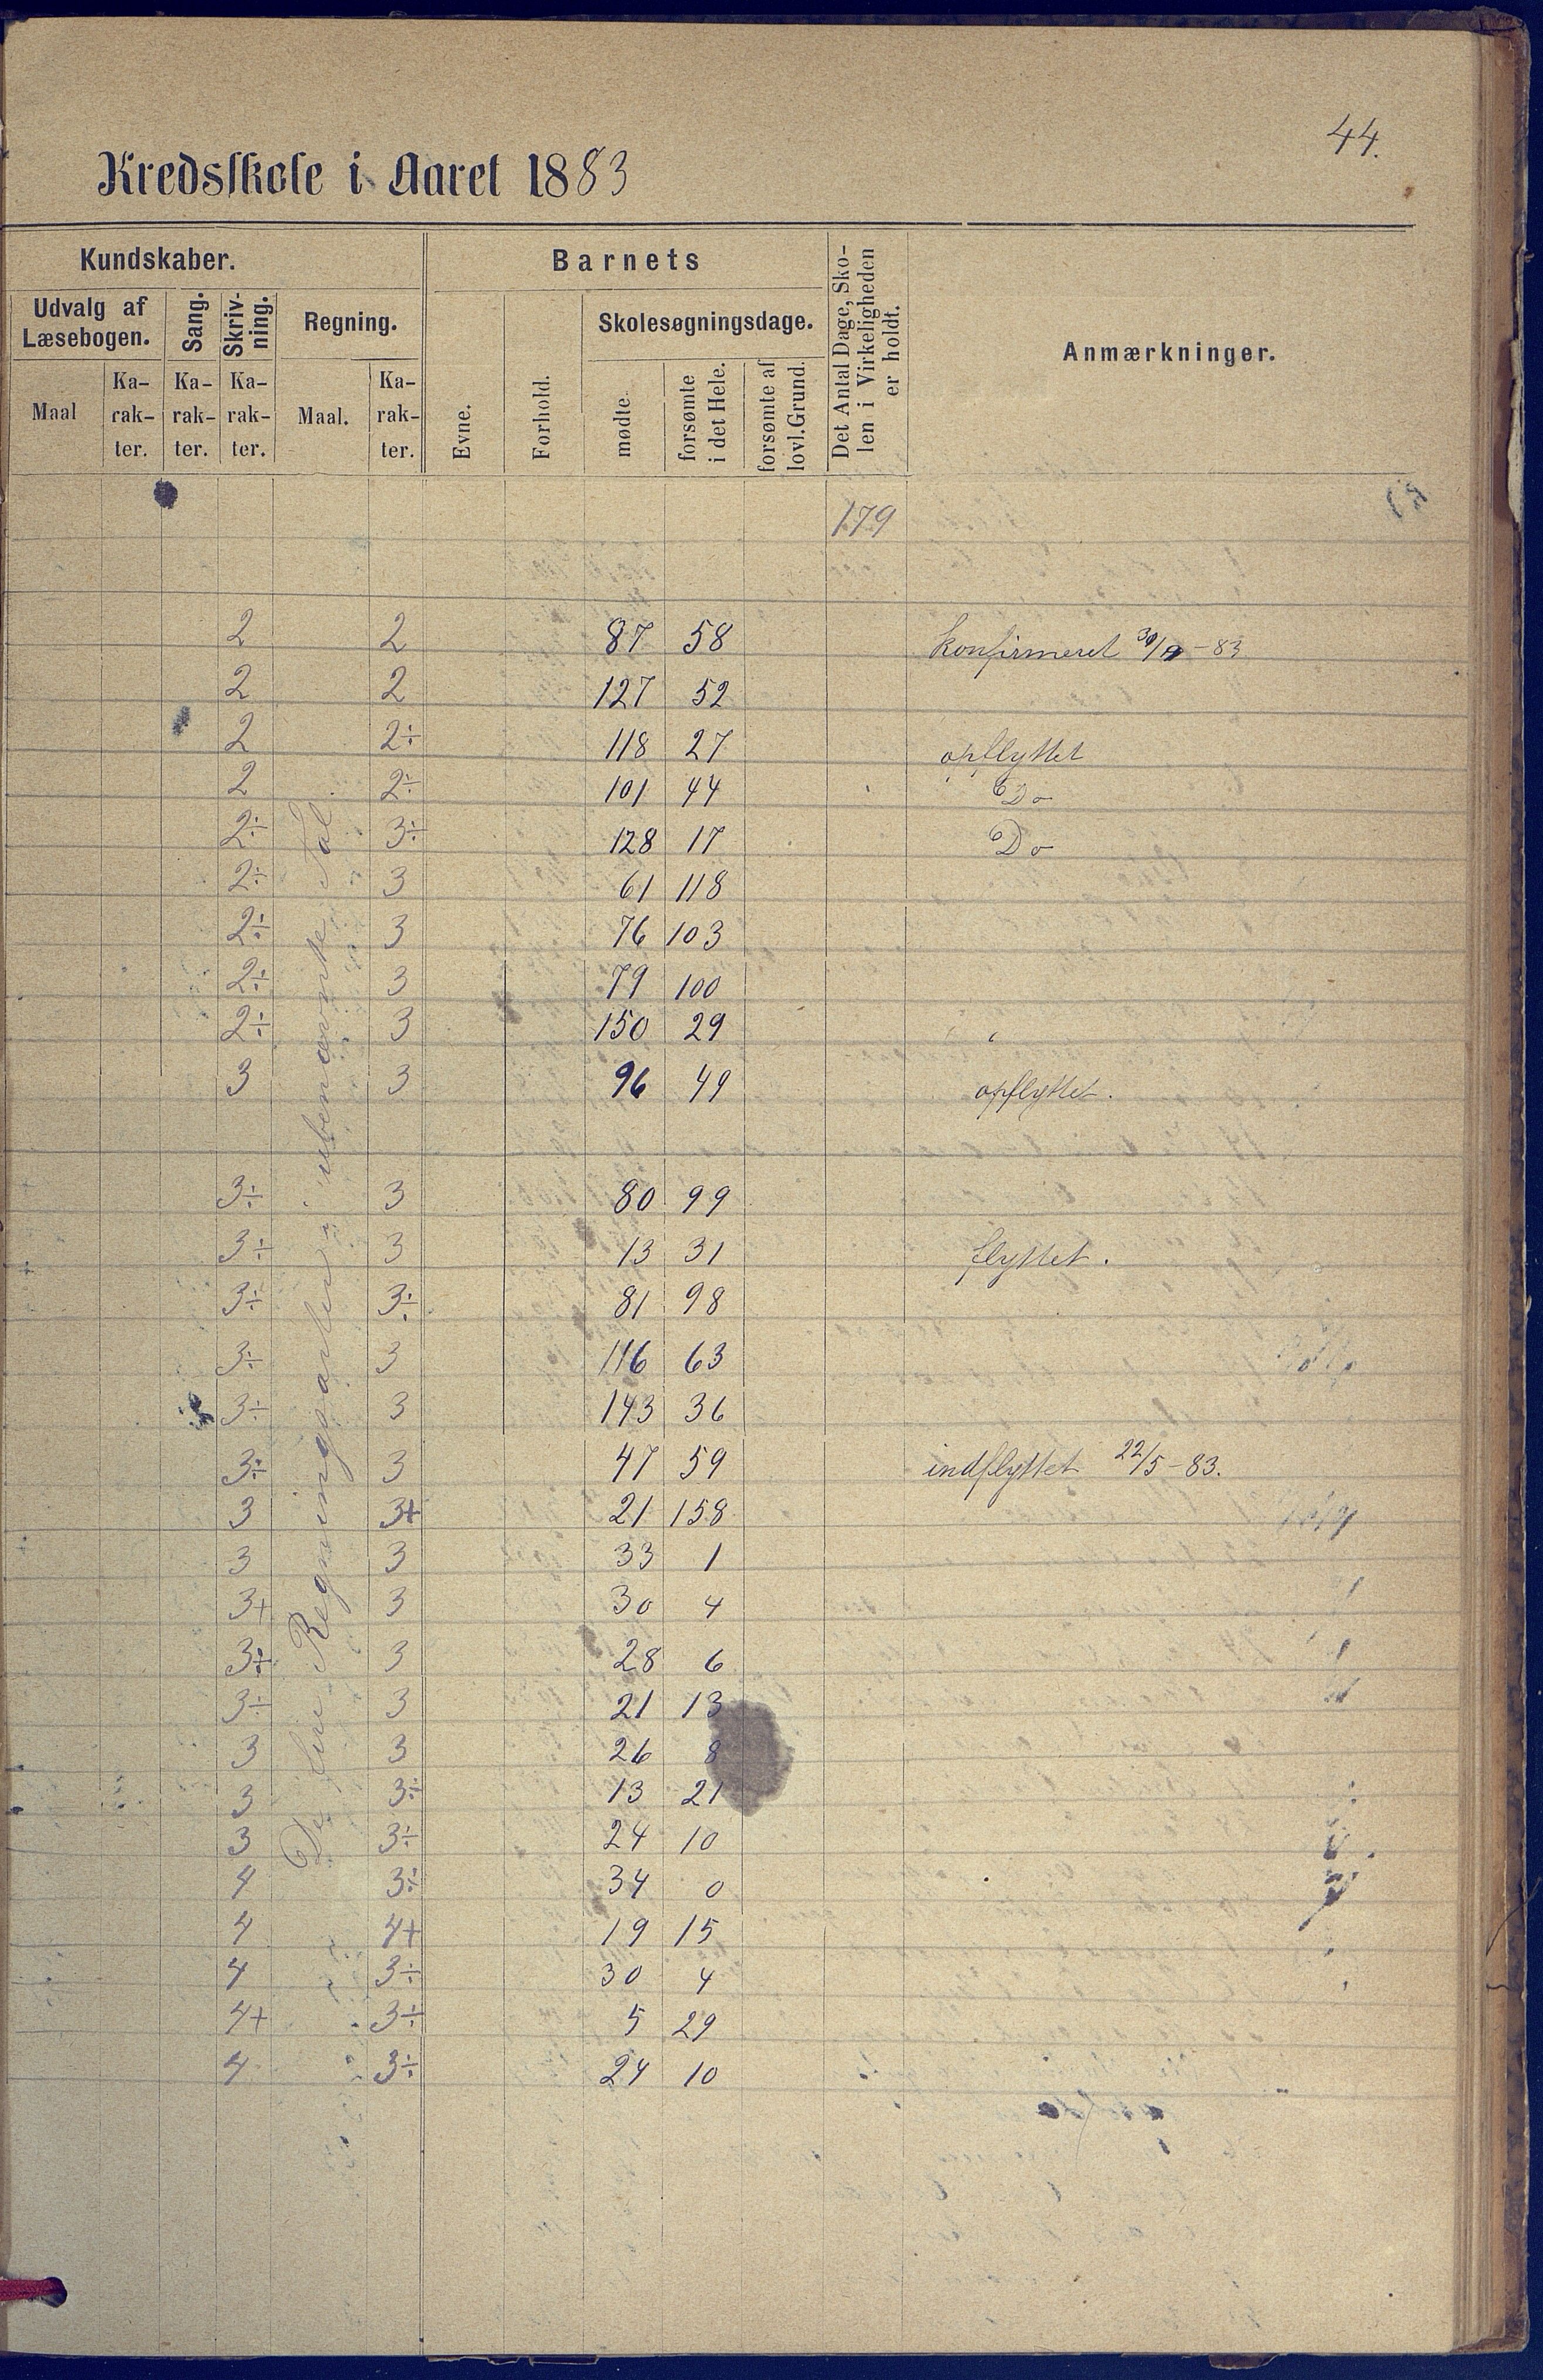 44.
Kredsskole i Aaret 1883
Kundskaber.
Barnets
Det Antal Dage, Sko-
len i Virkeligheden
er holdt.
Anmærkninger.
Udvalg af
Læsebogen.
Sang.
Skriv-
ning.
Regning.
Skolesøgningsdage.
Maal
Ka-
rak-
ter.
Ka-
rak-
ter.
Ka-
rak-
ter.
Maal.
Ka-
rak-
ter.
Evne.
Forhold.
mødte.
forsømte
i det Hele.
forsømte af
lovl. Grund.
179
De fire Regningsarter i ubenævnte Tal
2 2 87 58 konfirmeret 30/9-83
2 2 127 52
2 2÷ 118 27 opflyttet
2 2÷ 101 44 Do
2÷ 3÷ 128 17 Do
2÷ 3 61 118
2÷ 3 76 103
2÷ 3 79 100
2÷ 3 150 29
3 3 96 49 opflyttet.
3÷ 3 80 99
3÷ 3 13 31 flyttet.
3÷ 3÷ 81 98
3÷ 3 116 63
3÷ 3 143 36
3÷ 3 47 59 indflyttet 22/5-83.
3 3+ 21 158
3 3 33 1
3+ 3 30 4
3÷ 3 28 6
3÷ 3 21 13
3 3 26 8
3 3÷ 13 21
3 3÷ 24 10
4 3÷ 34 0
4 4+ 19 15
4 3÷ 30 4
4+ 3÷ 5 29
4 3÷ 24 10